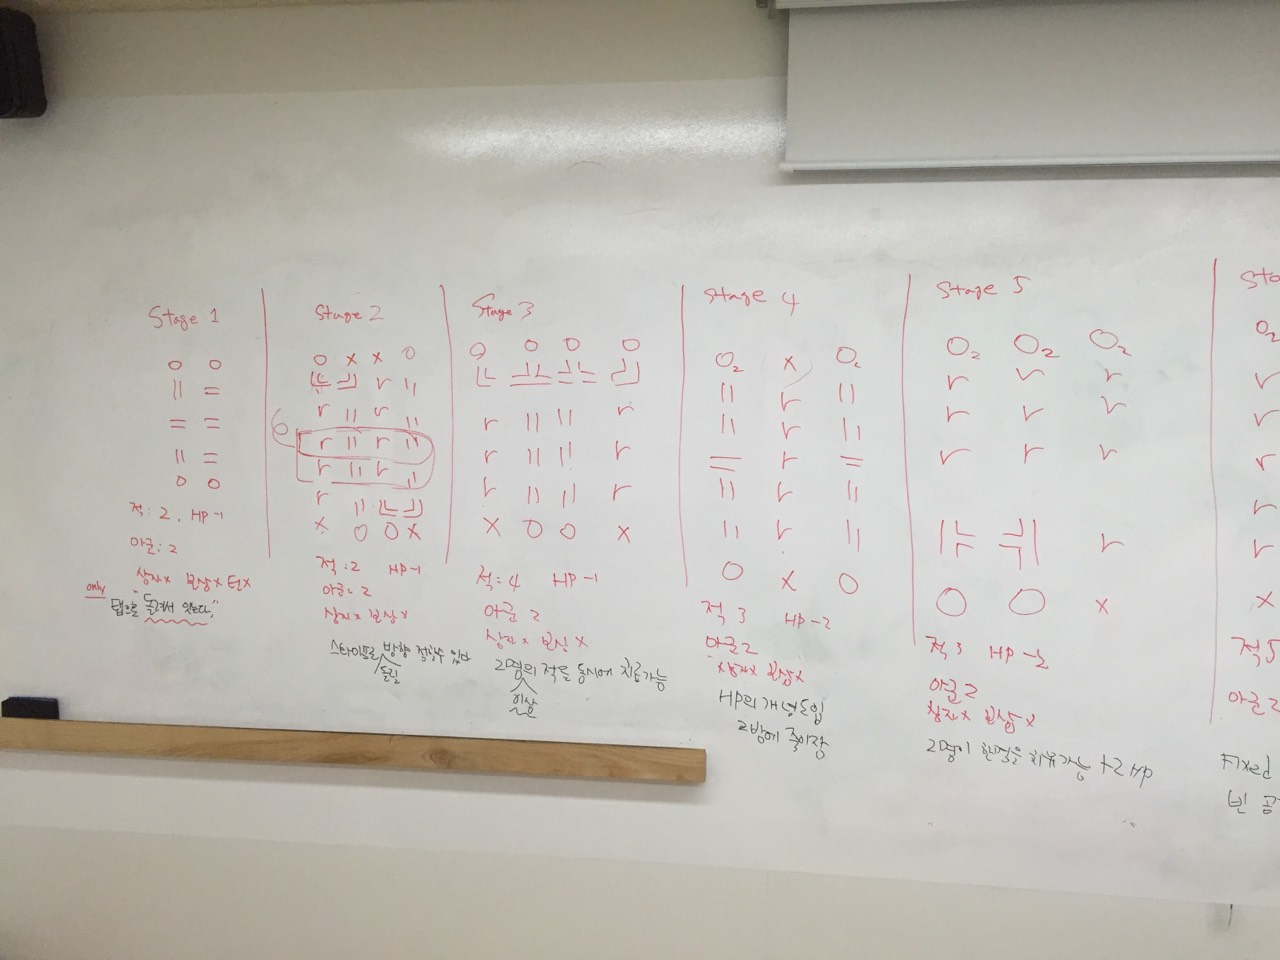 Stage 1
O O
|| =
= =
|| =
O O
적: 2, HP-1
아군: 2
상자x 보상x 턴x
only 탭으로 돌려서 잇는다,"
Stage 2
O x x O
r ||
r || r ||
r || r ||
r || r ||
r ||
x O O x
적: 2 HP-1
아군: 2
상자x 보상x
방향 적할수 있다
돌릴
Stage 3
O O O O
r || || r
r || || r
r || || r
x O O x
적: 4 HP-1
아군 2
상자x 보상x
2명의 적을 동시에 치료가능
이상
Stage 4
O2 x O2
|| r ||
|| r ||
= r =
|| r ||
|| r ||
O x O
적 3 HP-2
아군 2
상자x 보상x
HP의 개념도입
2방에 죽이장
Stage 5
O2 O2 O2
r r r
r r r
r r r
r
O O x
적 3 HP-2
아군 2
상자x 보상x
2명이 한적을 치유가능 +2 HP
O2
r
r
r
r
r
x
적 5
아군 2
Fixed
빈